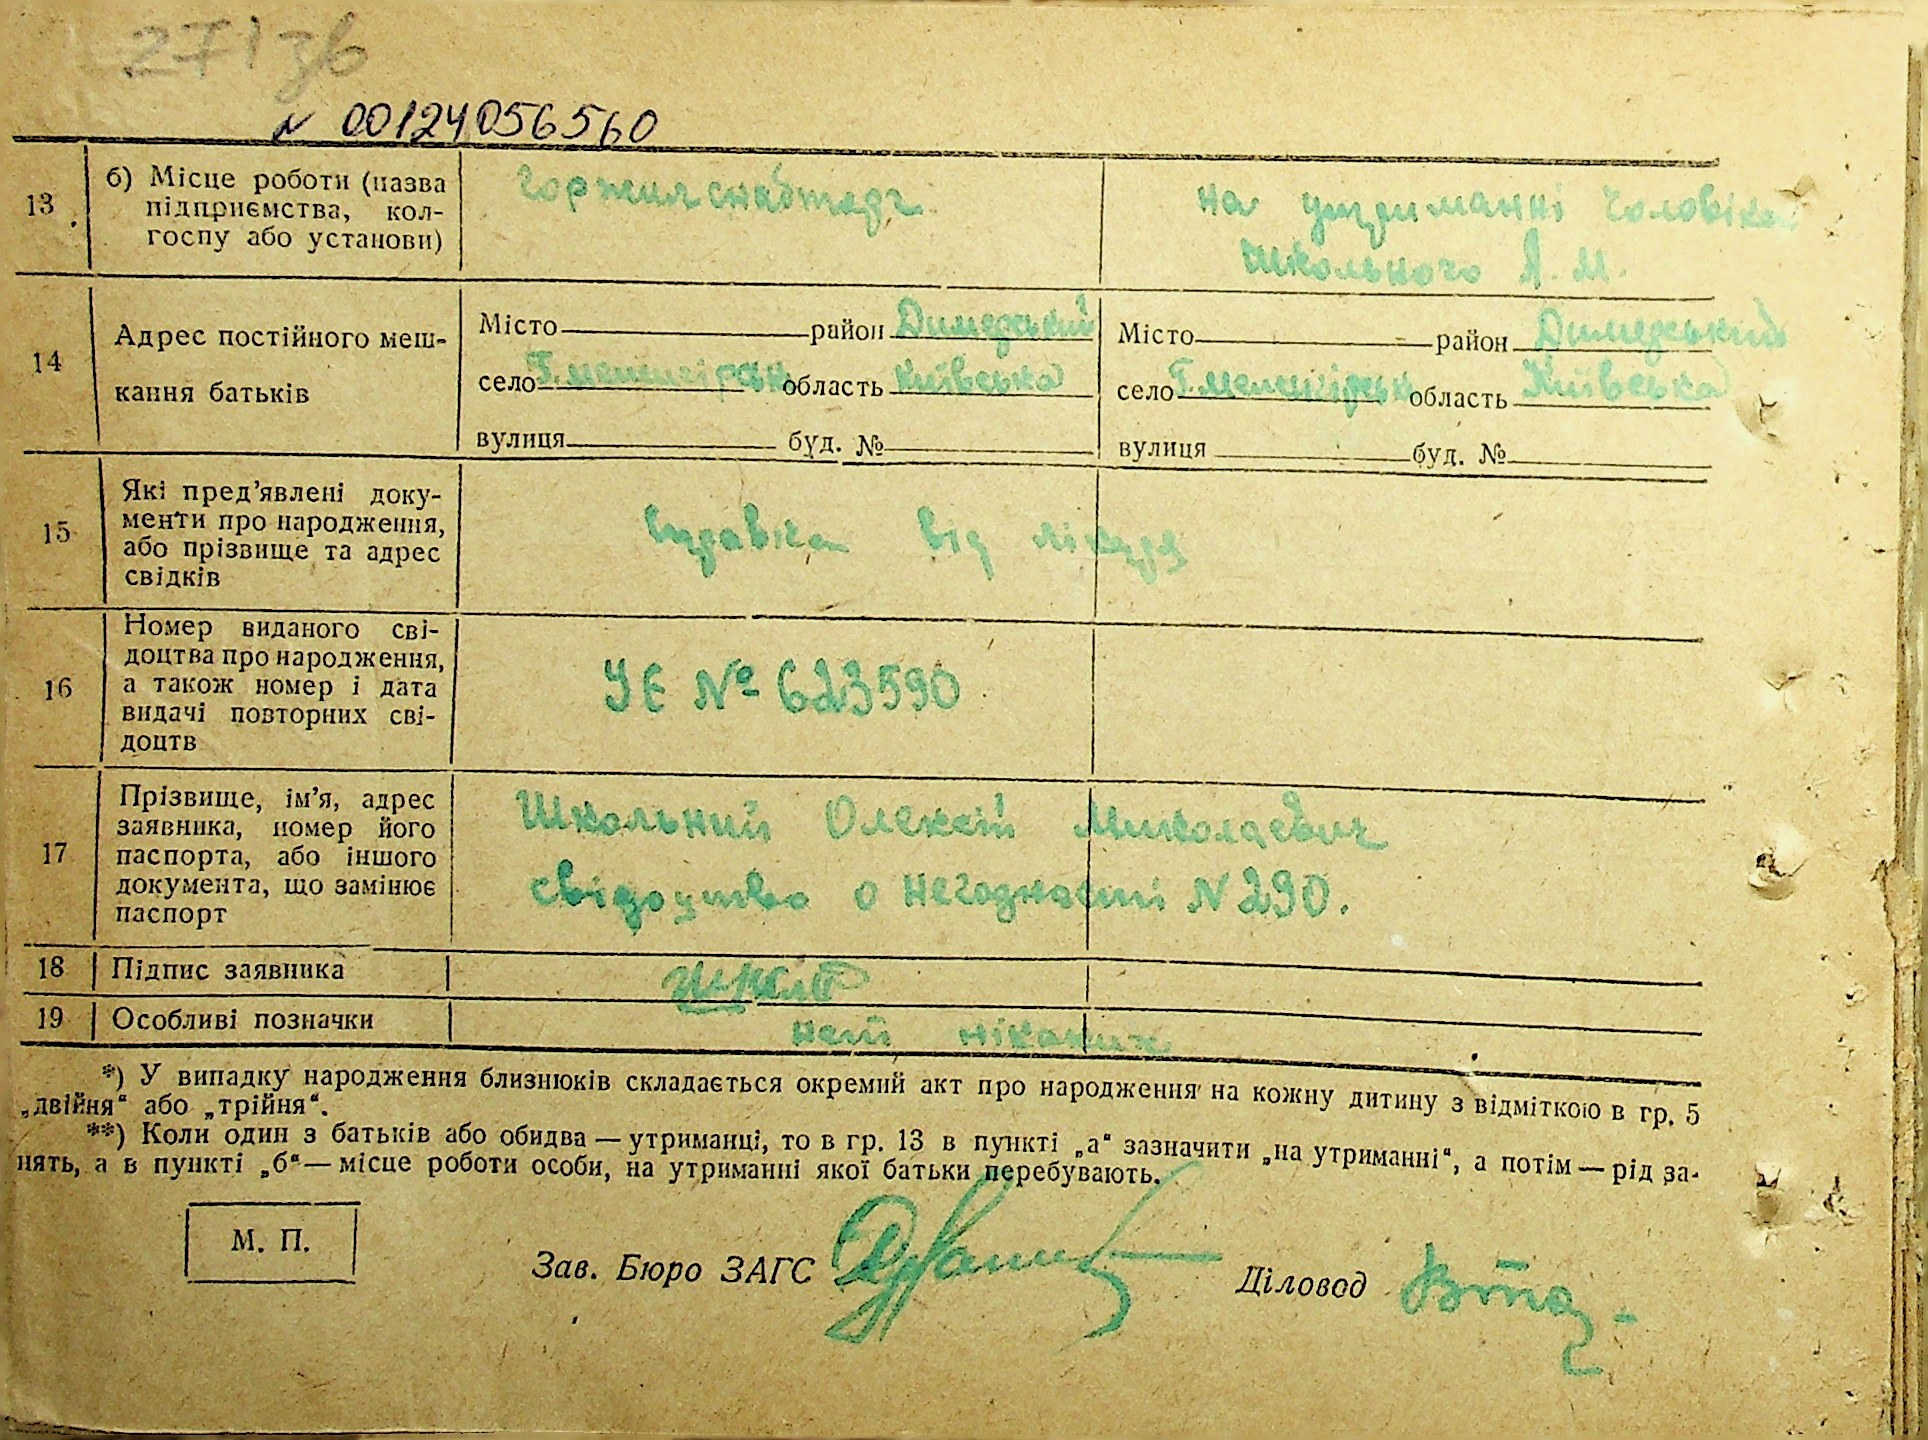 271зв
N 00124056560
13
б) Місце роботи (назва
підприємства, кол-
госпу або установи)
на утриманні чоловіка
Школьного А. М.
14
Адрес постійного меш-
кання батьків
Місто район Димерський
село область Київська
вулиця буд. №
Місто район Димерський
село область Київська
вулиця буд. №
15
Які пред’явлені доку-
менти про народження,
або прізвище та адрес
свідків
справка від лікаря
16
Номер виданого сві-
доцтва про народження,
а також номер і дата
видачі повторних сві-
доцтв
УЕ № 623590
17
Прізвище, ім’я, адрес
заявника, номер його
паспорта, або іншого
документа, що замінює
паспорт
Школьний Олексій Миколаєвич
свідоцтво о негодності N 290.
18 Підпис заявника
19 Особливі позначки
неті ніаких
*) У випадку народження близнюків складається окремий акт про народження на кожну дитину з відміткою в гр. 5
„двійня“ або „трійня“.
**) Коли один з батьків або обидва — утриманці, то в гр. 13 в пункті „а“ зазначити „на утриманні“, а потім — рід за-
нять, а в пункті „б“ — місце роботи особи, на утриманні якої батьки перебувають.
М. П.
Зав. Бюро ЗАГС
Діловод